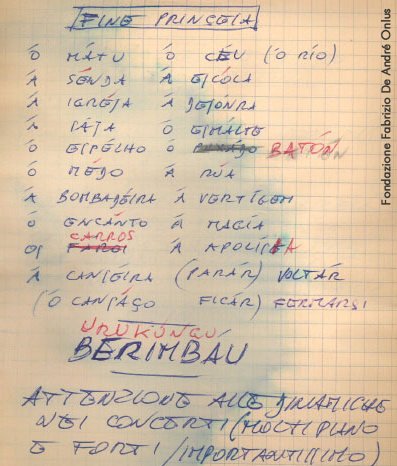 FINE PRINCESA
Ó MÁTU Ó CÉU (Ó RÍO)
Á SÉNDA Á ESCÓLA
Á IGRÉJA Á DESÓNRA
Á SÁJA Ó ESMÁLTE
Ó ESPÉLHO Ó BATÓN
Ó MÉDO Á RÚA
Á BOMBADÉIRA Á VERTÍGEM
Ó ENCÁNTO Á MAGÍA
OS CARROS Á APOLÍSIA
Á CANSÉIRA (PARÁR) VOLTÁR
(Ó CANSÁÇO FICÁR) FERMARSI
URUKÚNGU
BERIMBÁU
ATTENZIONE ALLE DINAMICHE
NEI CONCERTI (MOLTI PIANO
E FORTI / IMPORTANTISSIMO)
Fondazione Fabrizio De André Onlus